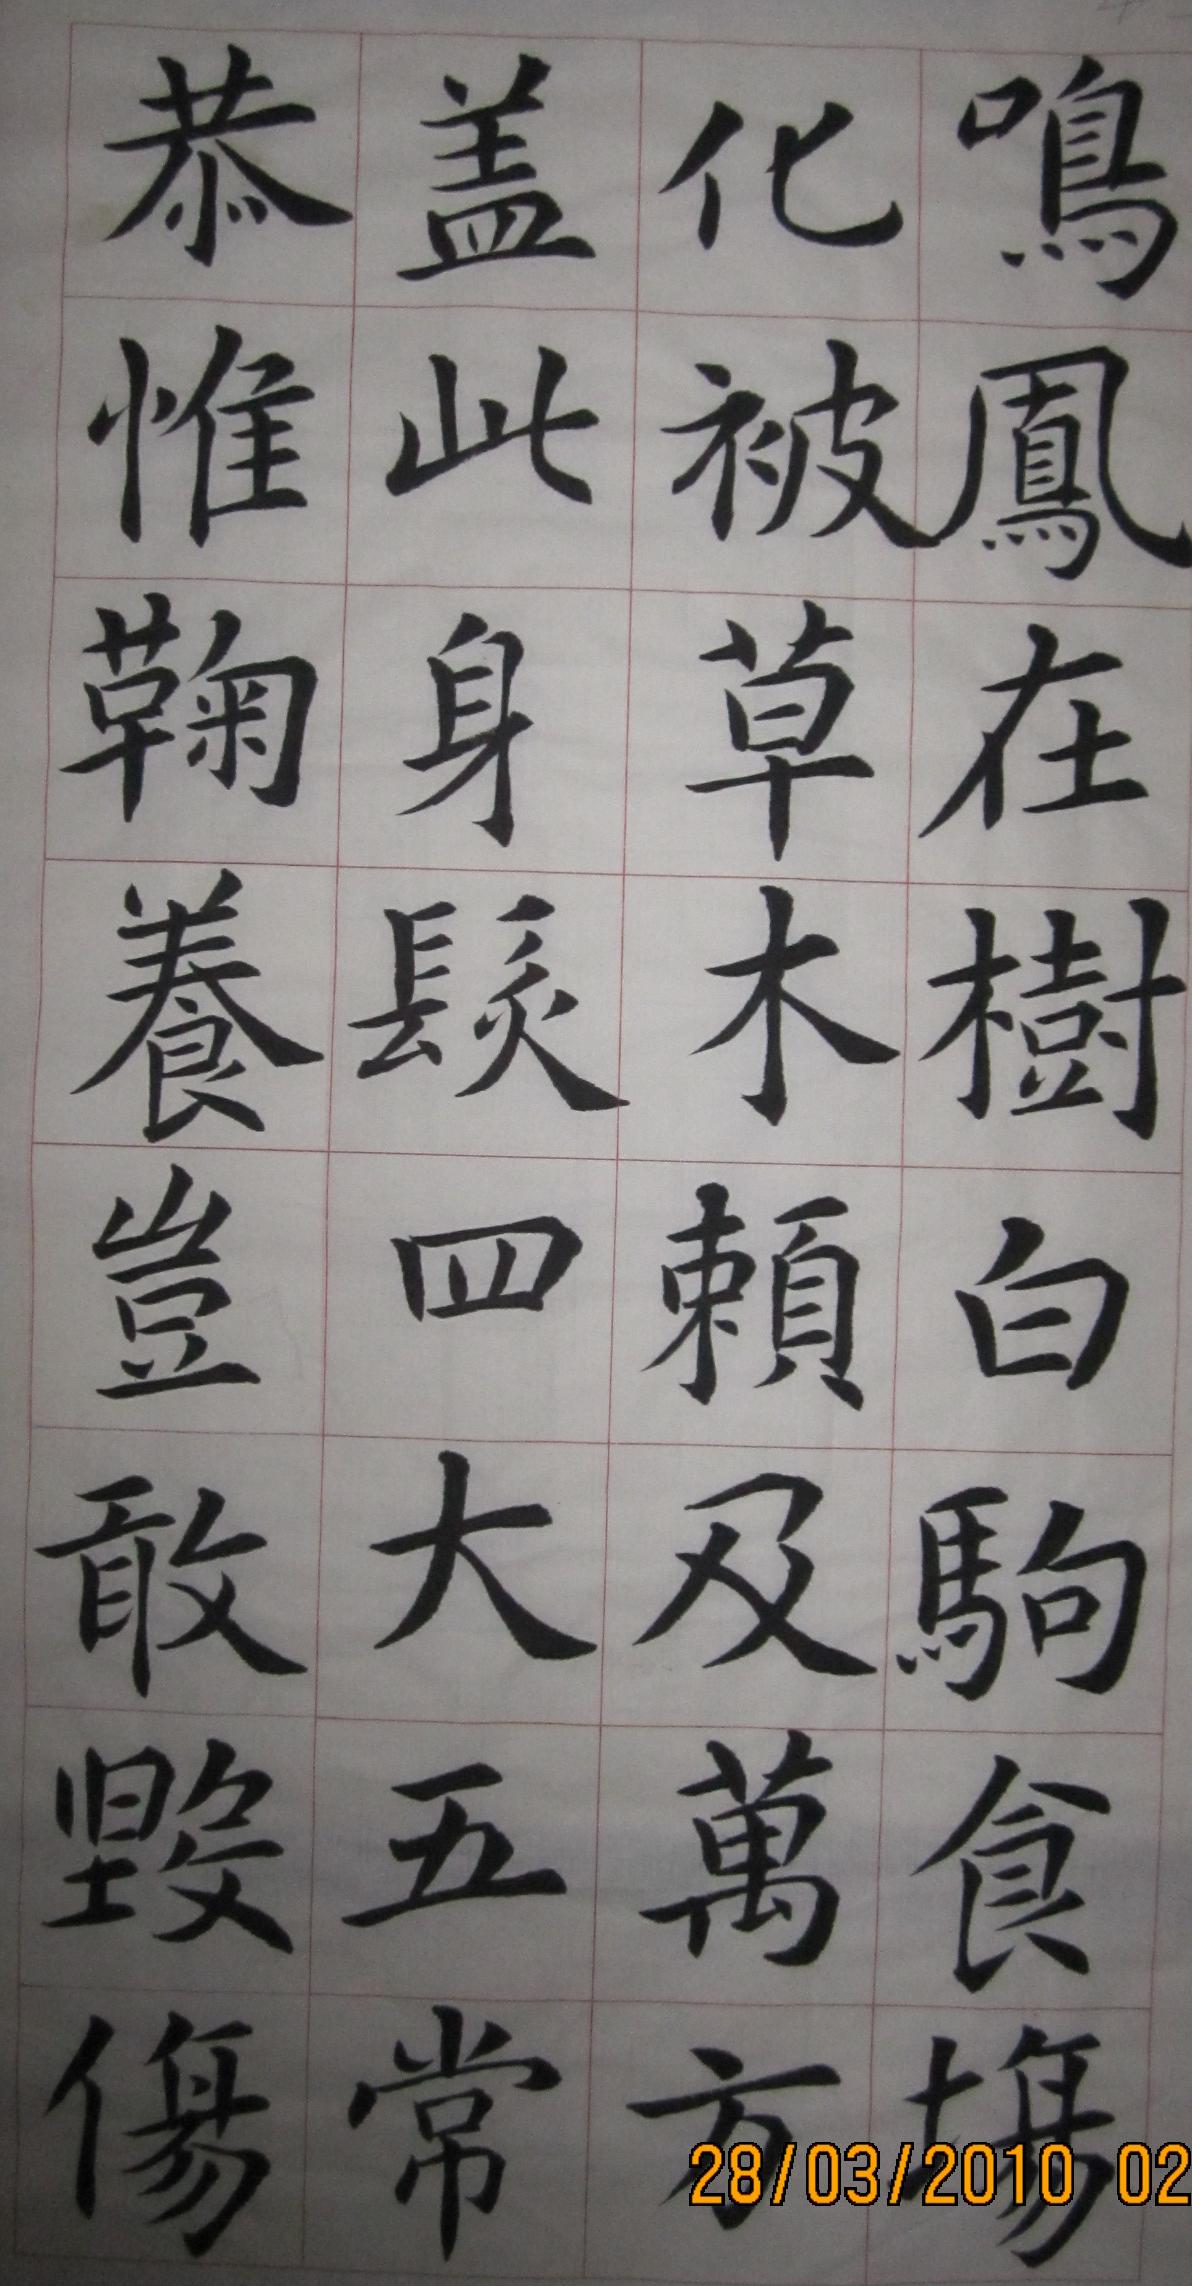 鳴鳳在樹白駒食場
化被草木賴及萬方
盖此身髮四大五常
恭惟鞠養豈敢毀傷
28/03/2010 02